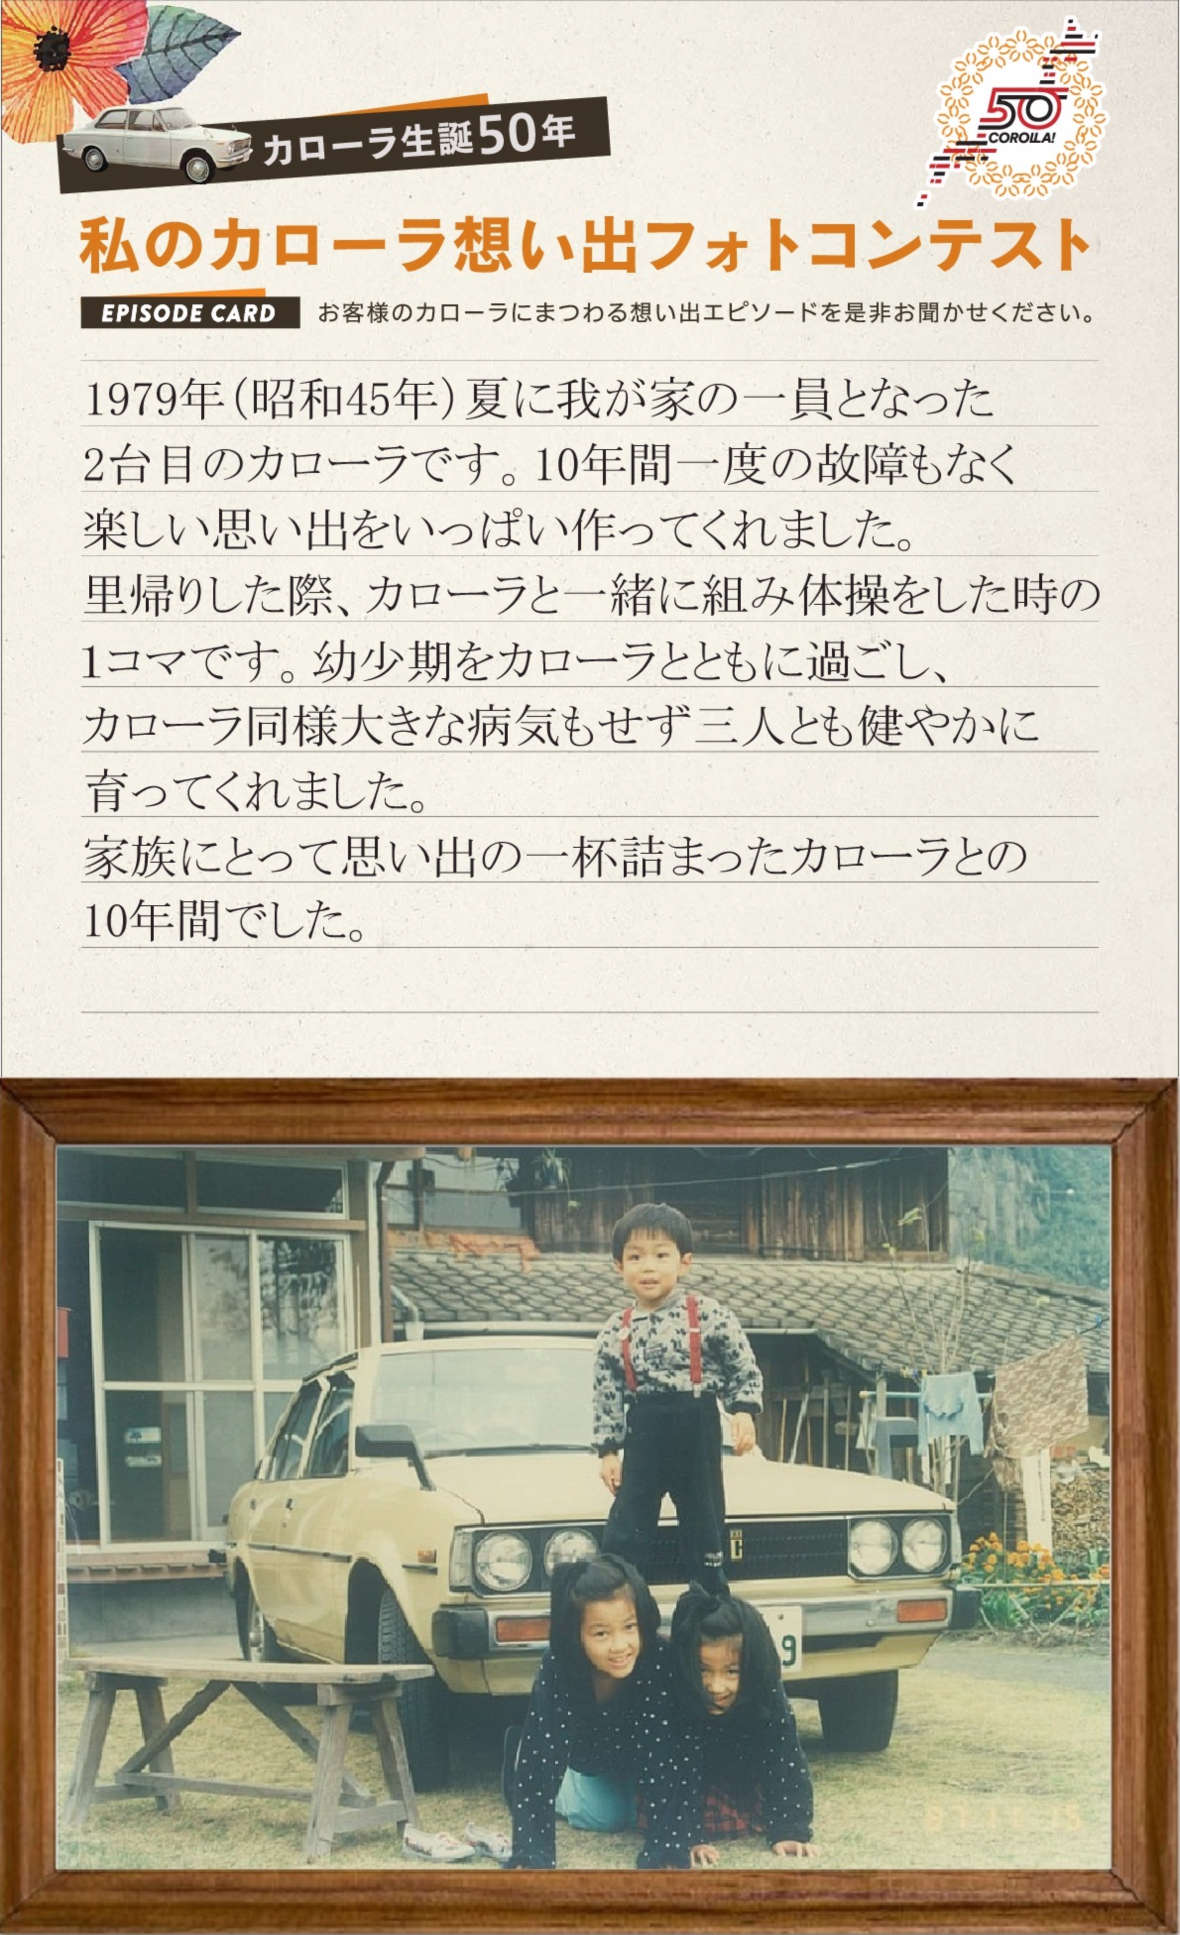 カローラ生誕50年
50
COROLLA!
私のカローラ想い出フォトコンテスト
EPISODE CARD お客様のカローラにまつわる想い出エピソードを是非お聞かせください。
1979年(昭和45年)夏に我が家の一員となった
2台目のカローラです。10年間一度の故障もなく
楽しい思い出をいっぱい作ってくれました。
里帰りした際、カローラと一緒に組み体操をした時の
1コマです。幼少期をカローラとともに過ごし、
カローラ同様大きな病気もせず三人とも健やかに
育ってくれました。
家族にとって思い出の一杯詰まったカローラとの
10年間でした。
9